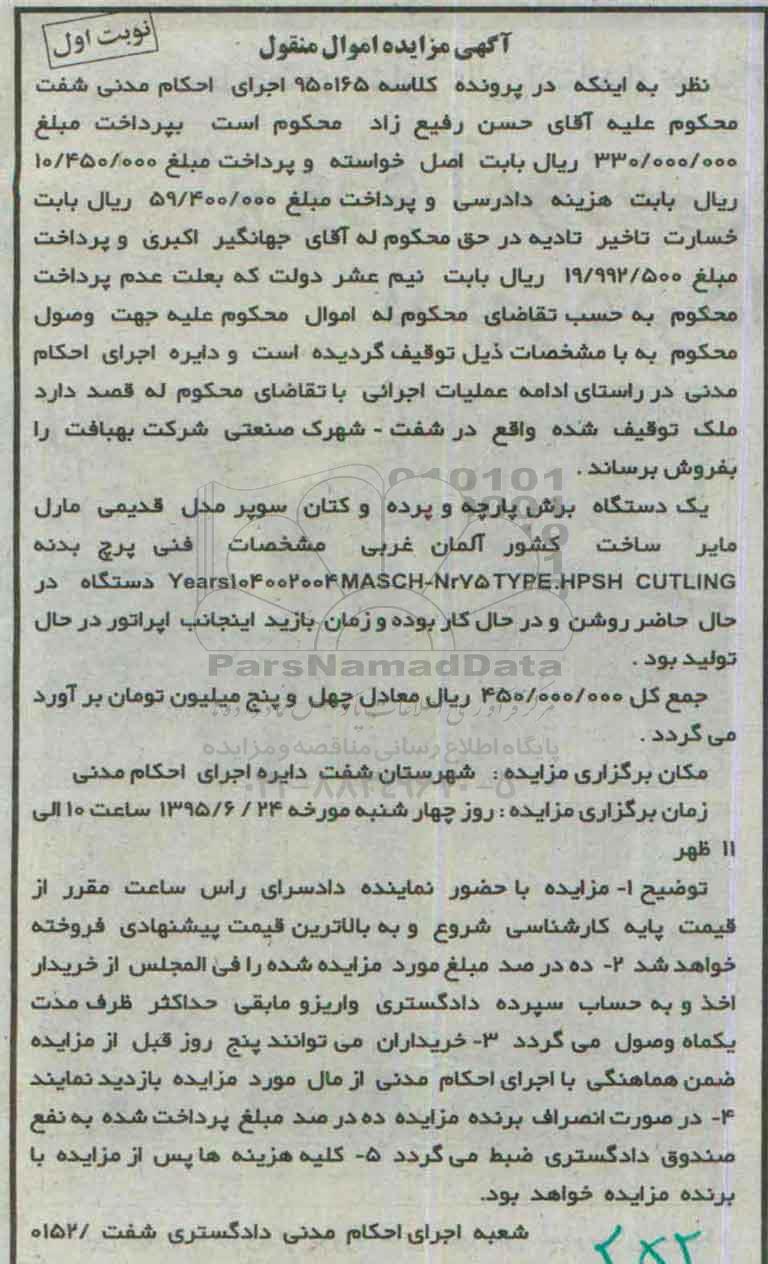 نوبت اول
آگهی مزایده اموال منقول
نظر به اینکه در پرونده کلاسه ۹۵۰۱۶۵ اجرای احکام مدنی شفت
محکوم علیه آقای حسن رفیع زاد محکوم است بپرداخت مبلغ
۳۳۰/۰۰۰/۰۰۰ ریال بابت اصل خواسته و پرداخت مبلغ ۱۰/۴۵۰/۰۰۰
ریال بابت هزینه دادرسی و پرداخت مبلغ ۵۹/۴۰۰/۰۰۰ ریال بابت
خسارت تاخیر تادیه در حق محکوم له آقای جهانگیر اکبری و پرداخت
مبلغ ۱۹/۹۹۲/۵۰۰ ریال بابت نیم عشر دولت که بعلت عدم پرداخت
محکوم به حسب تقاضای محکوم له اموال محکوم علیه جهت وصول
محکوم به با مشخصات ذیل توقیف گردیده است و دایره اجرای احکام
مدنی در راستای ادامه عملیات اجرائی با تقاضای محکوم له قصد دارد
ملک توقیف شده واقع در شفت - شهرک صنعتی شرکت بهبافت را
بفروش برساند .
یک دستگاه برش پارچه و پرده و کتان سوپر مدل قدیمی مارل
مایر ساخت کشور آلمان غربی مشخصات فنی پرچ بدنه
Years۱۰۴۰۰۲۰۰۴MASCH-Nr۷۵TYPE.HPSH CUTLING دستگاه در
حال حاضر روشن و در حال کار بوده و زمان بازید اینجانب اپراتور در حال
تولید بود .
ParsNamadData
جمع کل ۴۵۰/۰۰۰/۰۰۰ ریال معادل چهل و پنج میلیون تومان بر آورد
می گردد .
پایگاه اطلاع رسانی مناقصه و مزایده
مکان برگزاری مزایده : شهرستان شفت دایره اجرای احکام مدنی
زمان برگزاری مزایده : روز چهار شنبه مورخه ۲۴ / ۶ /۱۳۹۵ ساعت ۱۰ الی
۱۱ ظهر
توضیح ۱- مزایده با حضور نماینده دادسرای راس ساعت مقرر از
قیمت پایه کارشناسی شروع و به بالاترین قیمت پیشنهادی فروخته
خواهد شد ۲- ده در صد مبلغ مورد مزایده شده را فی المجلس از خریدار
اخذ و به حساب سپرده دادگستری واریزو مابقی حداکثر ظرف مدت
یکماه وصول می گردد ۳- خریداران می توانند پنج روز قبل از مزایده
ضمن هماهنگی با اجرای احکام مدنی از مال مورد مزایده بازدید نمایند
۴- در صورت انصراف برنده مزایده ده در صد مبلغ پرداخت شده به نفع
صندوق دادگستری ضبط می گردد ۵- کلیه هزینه ها پس از مزایده با
برنده مزایده خواهد بود.
شعبه اجرای احکام مدنی دادگستری شفت /۰۱۵۲